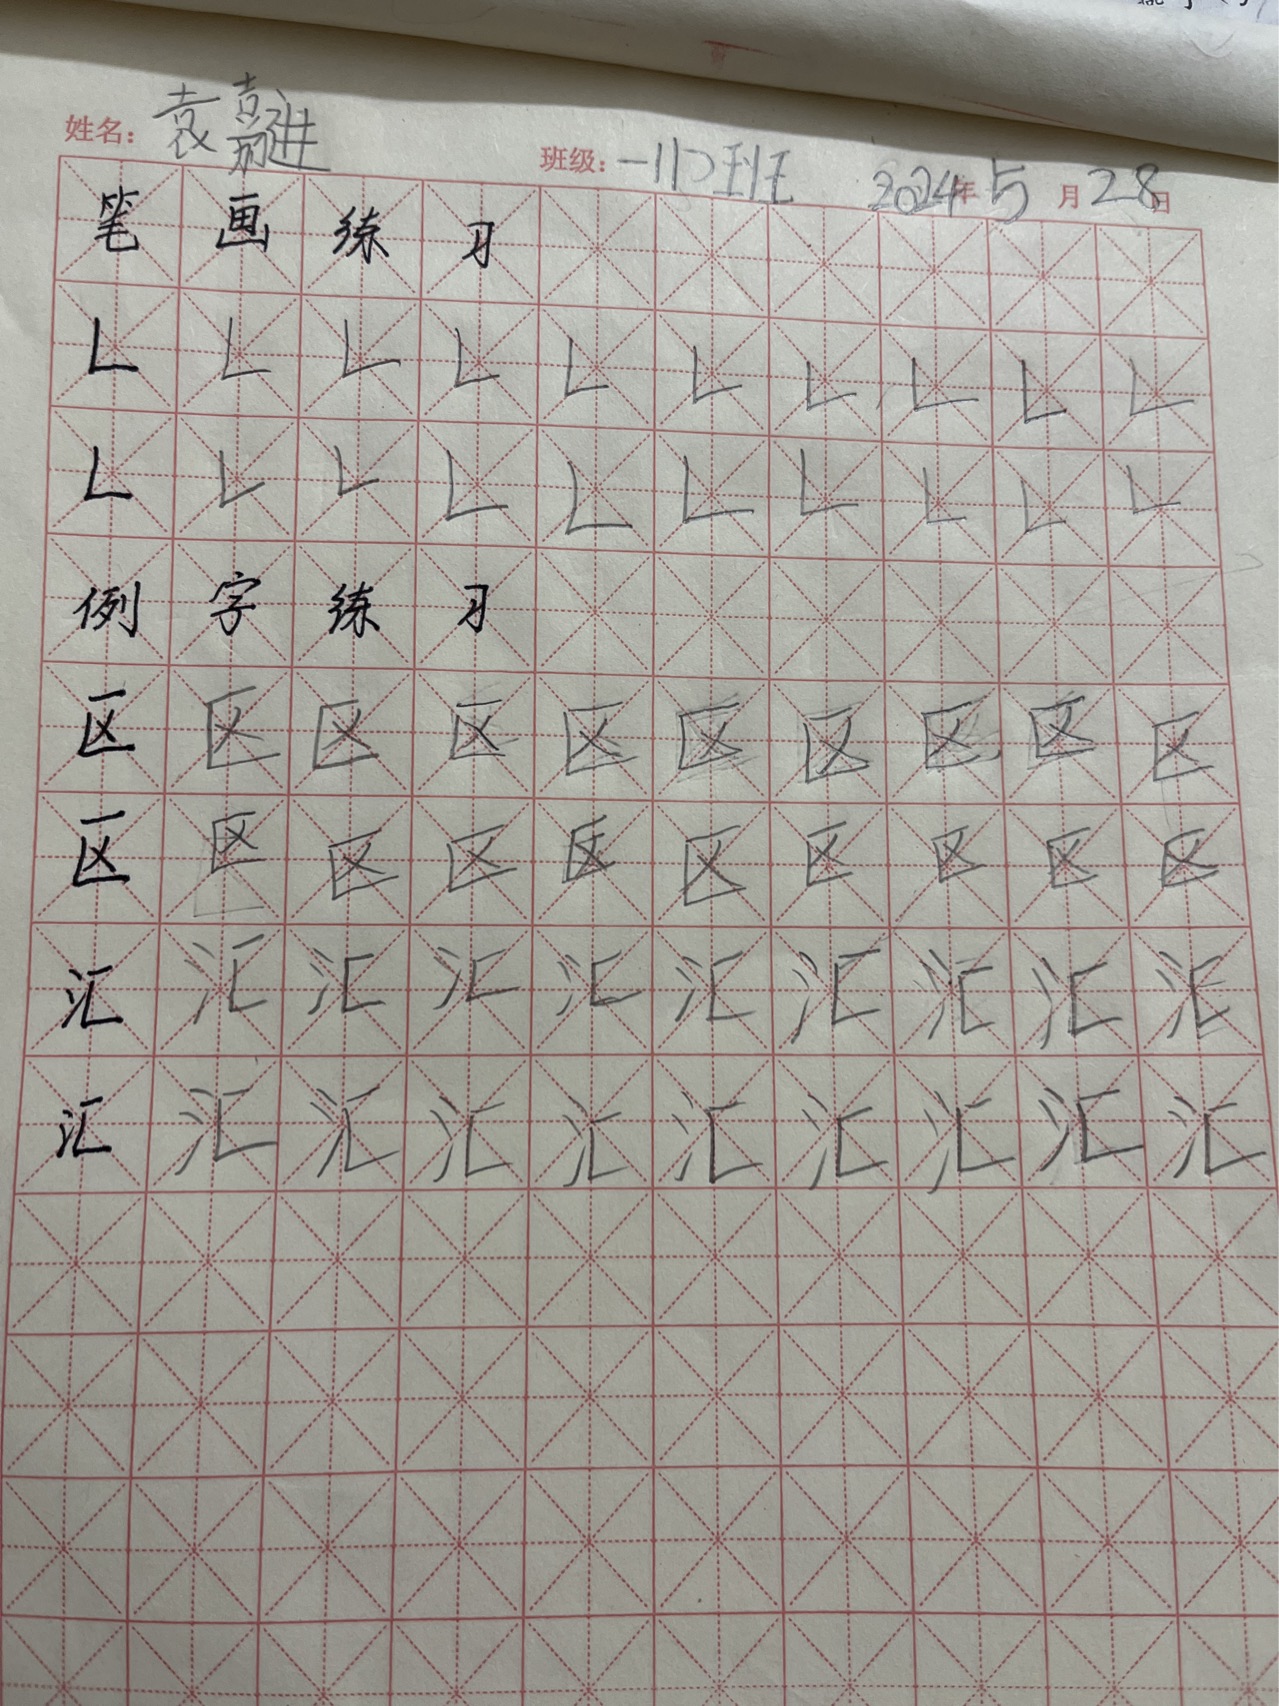 姓名：袁嘉进 班级：一(1)班 2024年5月28日
笔画练习
𠃊𠃊𠃊𠃊𠃊𠃊𠃊𠃊𠃊𠃊
𠃊𠃊𠃊𠃊𠃊𠃊𠃊𠃊𠃊𠃊
例字练习
区区区区区区区区区区
区区区区区区区区区区
汇汇汇汇汇汇汇汇汇汇
汇汇汇汇汇汇汇汇汇汇